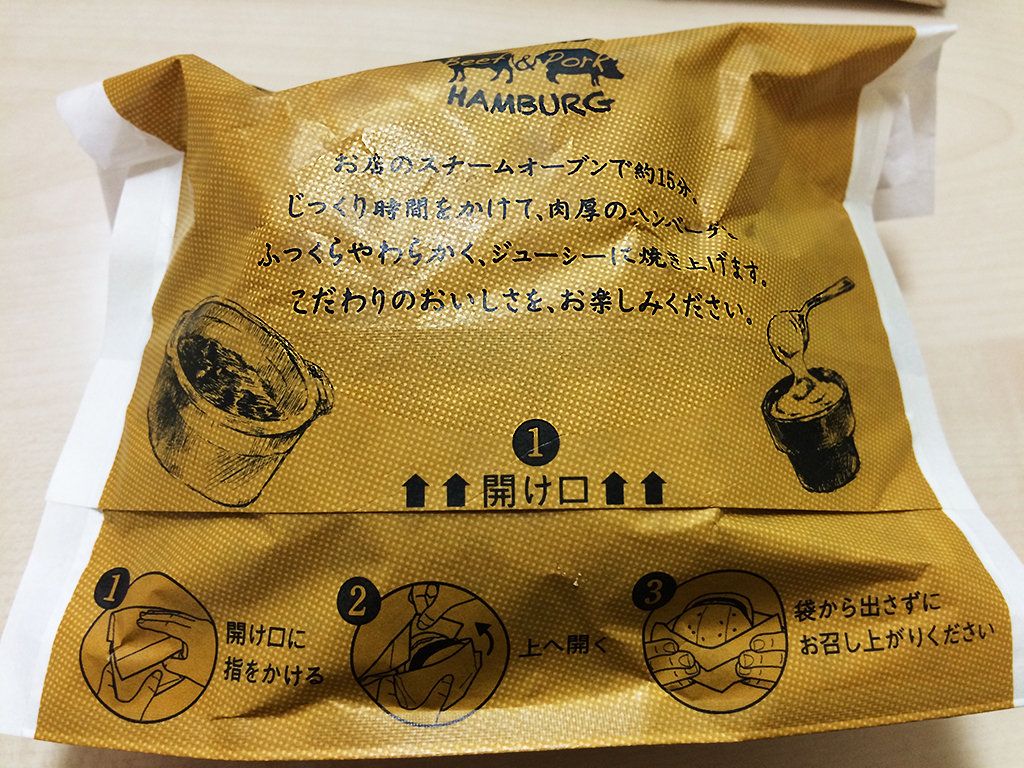 Beef & Pork
HAMBURG
お店のスチームオーブンで約15分、
じっくり時間をかけて、肉厚のハンバーグを
ふっくらやわらかく、ジューシーに焼き上げます。
こだわりのおいしさを、お楽しみください。
1
開け口
1
開け口に
指をかける
2
上へ開く
3
袋から出さずに
お召し上がりください